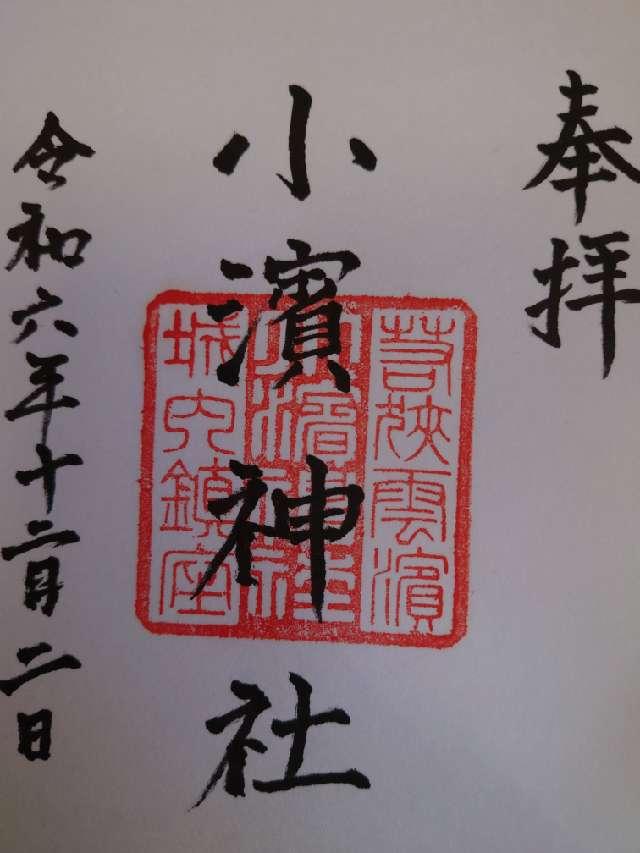 奉拝
小濱神社
若狹雲濱
小濱神社
城内鎮座
令和六年十二月二日